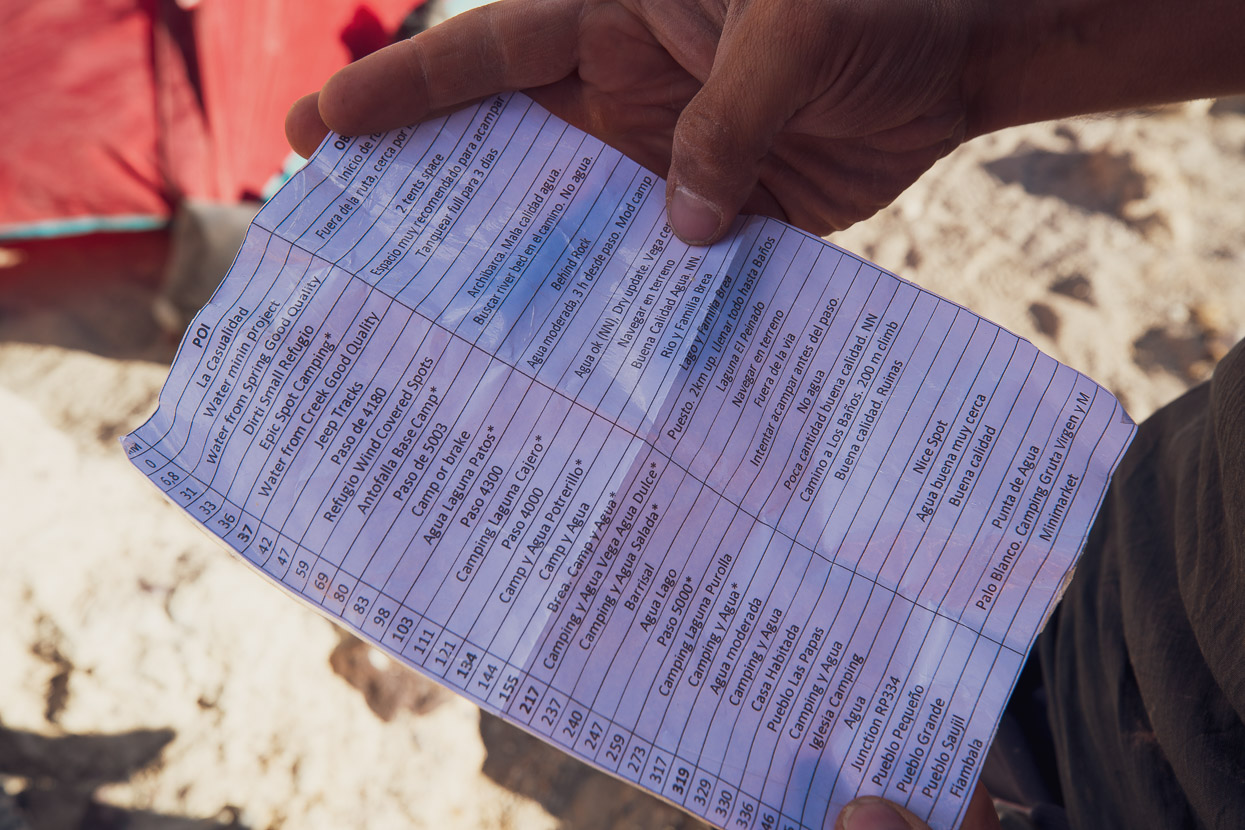 KM
0
6.8
31
33
36
37
42
47
59
69
80
83
98
103
111
121
134
144
155
217
237
240
247
259
273
317
319
329
330
336
POI
La Casualidad
Water minin Project
Water from Spring Good Quality
Dirti Small Refugio
Epic Spot Camping*
Water from Creek Good Quality
Jeep Tracks
Paso de 4.180
Refugio Wind Covered Spots
Antofalla Base Camp*
Paso de 5003
Camp or brake
Agua Laguna Patos*
Paso 4300
Camping Laguna Cajero*
Paso 4000
Camp y Agua Potrerillo*
Camp y Agua
Brea. Camp y Agua*
Camping y Agua Vega Agua Dulce*
Camping y Agua Salada*
Barrisal
Agua Lago
Paso 5000*
Camping Laguna Purolla
Camping y Agua*
Agua moderada
Camping y Agua
Casa Habitada
Pueblo Las Papas
Camping y Agua
Iglesia Camping
Agua
Junction RP334
Pueblo Pequeño
Pueblo Grande
Pueblo Saujil
Fiambala
Inicio de
Fuera de la ruta, cerca por
2 tents space
Espacio muy recomendado para acampar
Tanquear full para 3 dias
Archibarca. Mala calidad agua.
Buscar river bed en el camino. No agua.
Behind Rock
Agua moderada, 3 h desde paso. Mod camp
Agua ok (NN). Dry update. Vega
Navegar en terreno
Buena Calidad Agua. NN.
Rio y Familia Brea
Lago y Familia Brea
Puesto, 2km up, llenar todo hasta Baños
Laguna El Peinado
Navegar en terreno
Fuera de la via
Intentar acampar antes del paso.
No agua
Poca cantidad buena calidad. NN
Camino a Los Baños. 200 m climb
Buena calidad, Ruinas
Nice Spot
Agua buena muy cerca
Buena calidad
Punta de Agua
Palo Blanco. Camping Gruta Virgen y M
Minimarket